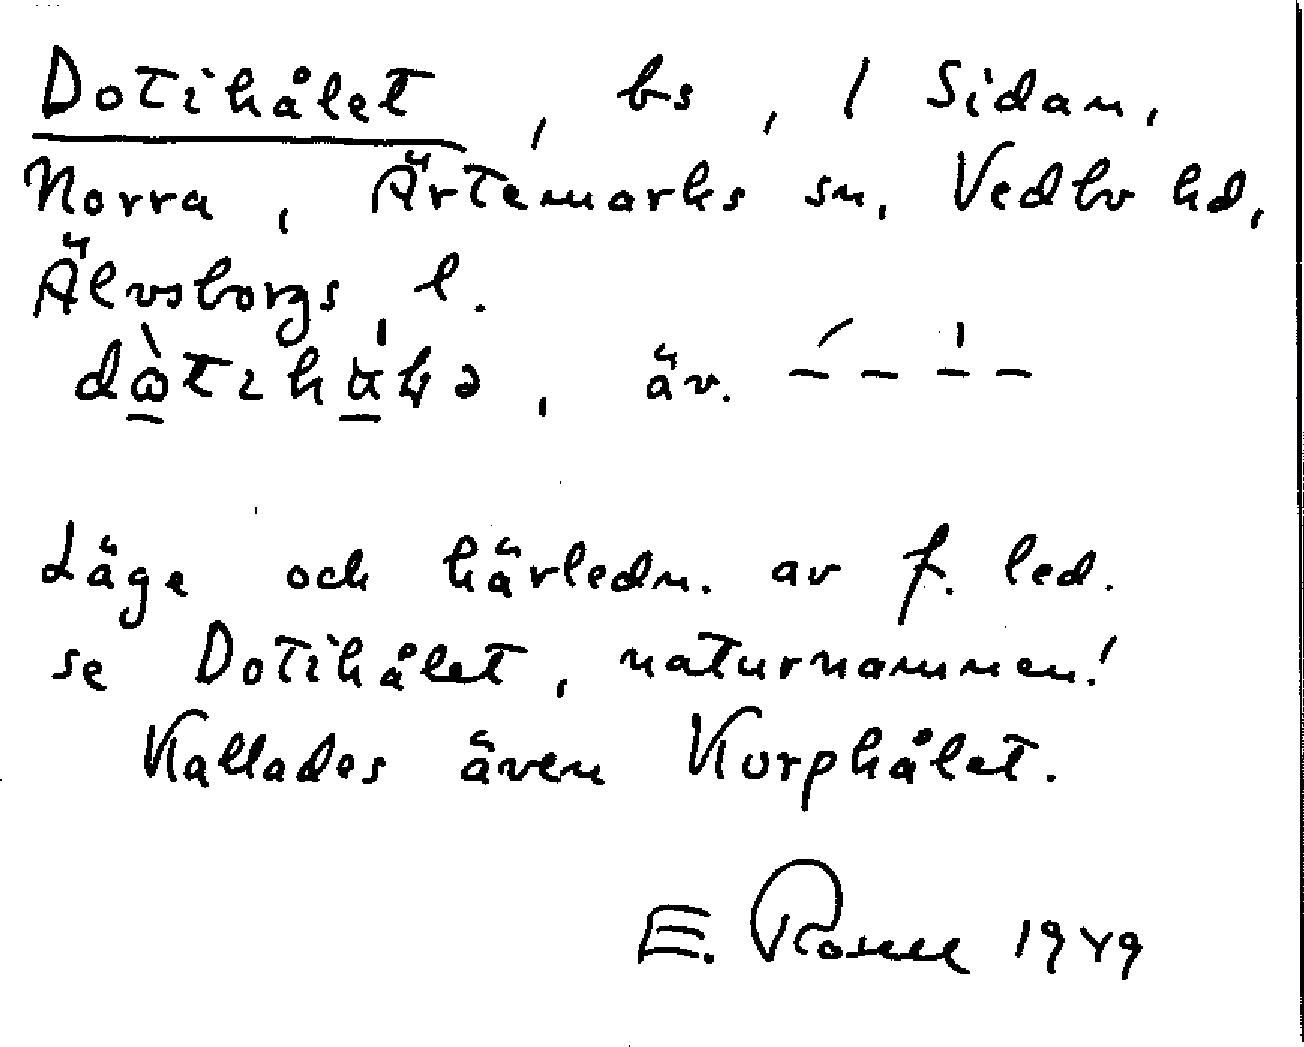 Dotihålet, bs, / Sidan,
Norra, Ärtemarks sn, Vedbo hd,
Älvsborgs l.
äv.
Läge och härledn. av f. led.
se Dotihålet, naturnamnen!
Kallades även Korphålet.
E. Rosell 1949